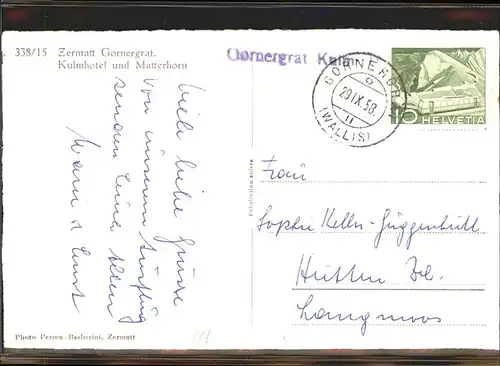 338/15 Zermatt Gornergrat.
Kulmhotel und Matterhorn
Gornergrat Kulm
GORNERGRAT
29.IX.58.
(WALLIS)
10 HELVETIA
Viele liebe Grüsse
von unserem Ausflug
senden Euch allen
Marie & Ernst
Frau
Sophie Keller-Guggenbühl
Hütten Zch.
Langmoos
Photo Perren-Barberini, Zermatt